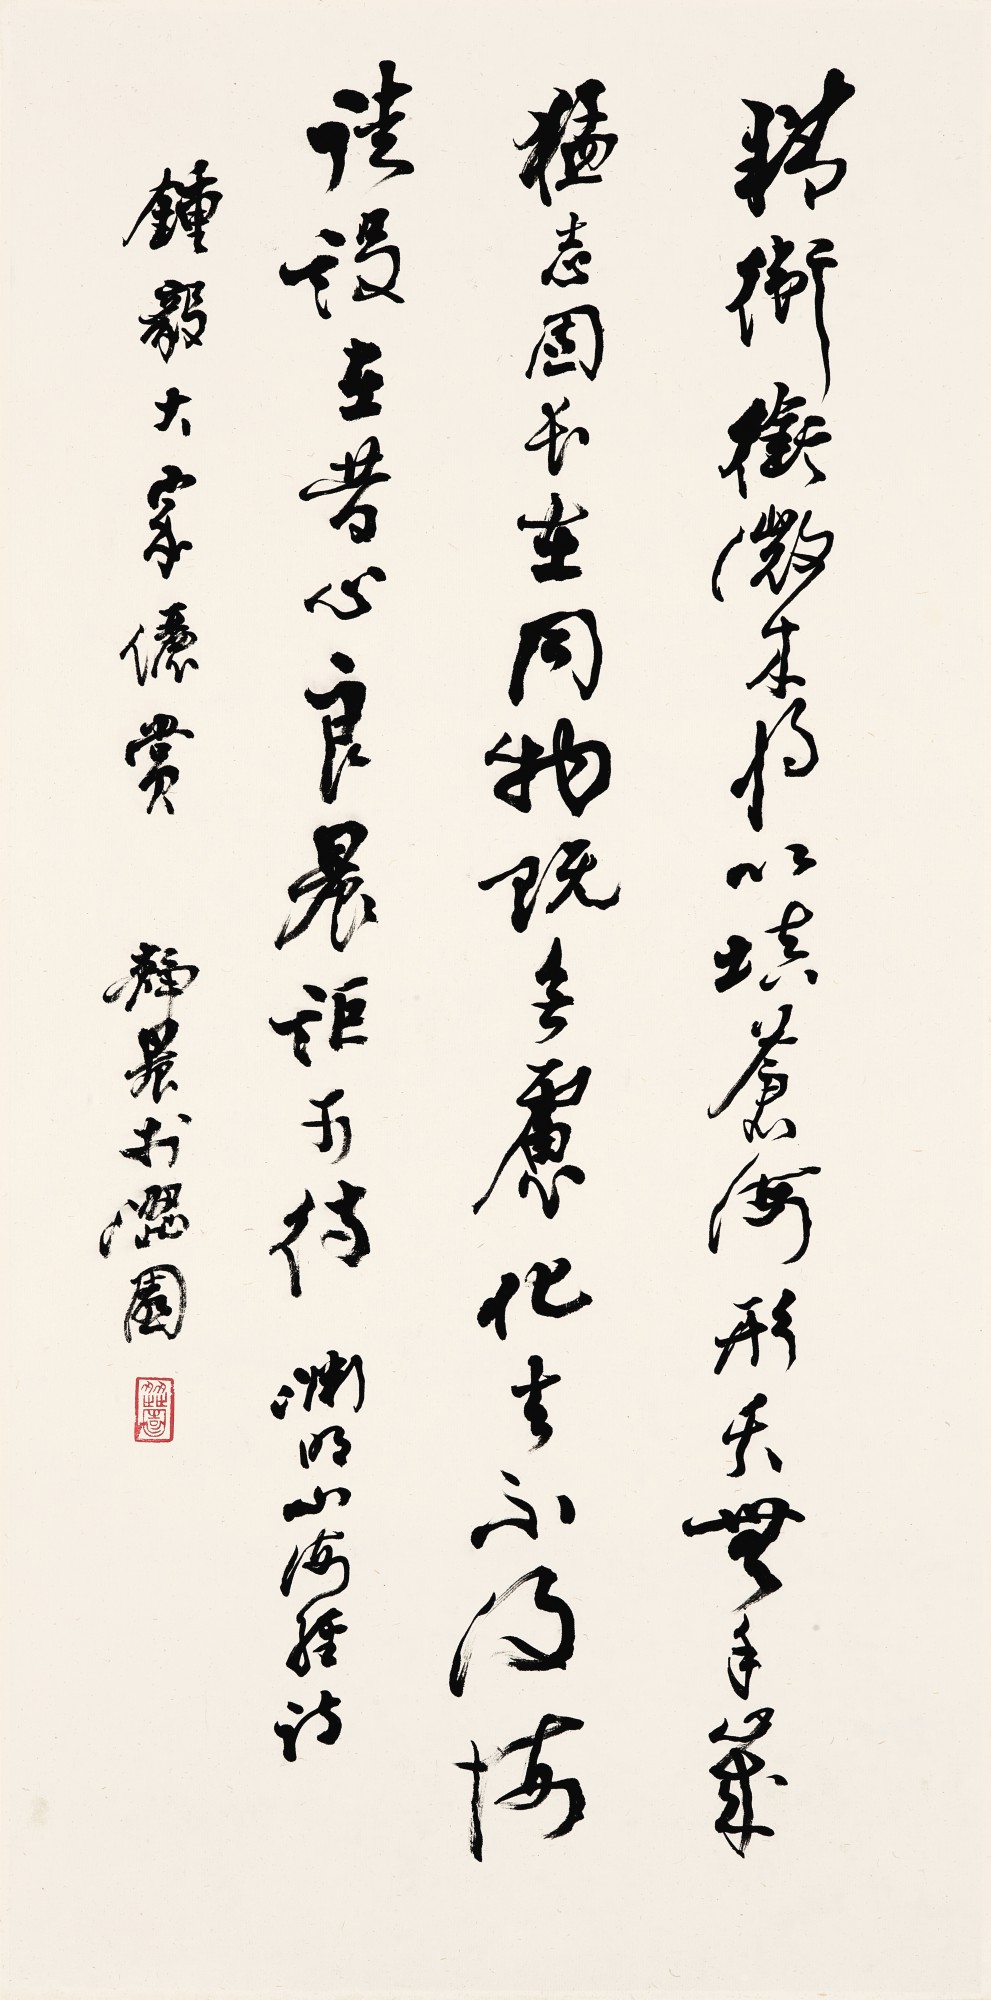 精衛銜微木將以填蒼海形夭無千歲
猛志固長在同物既無慮化去不復悔
徒設在昔心良晨詎可待 淵明山海經詩
鍾毅大家儷賞 靜農於澀園